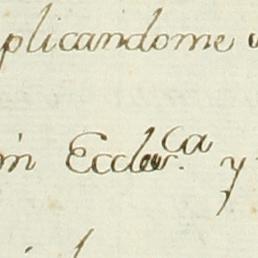 plicandome
Eccles.ca y